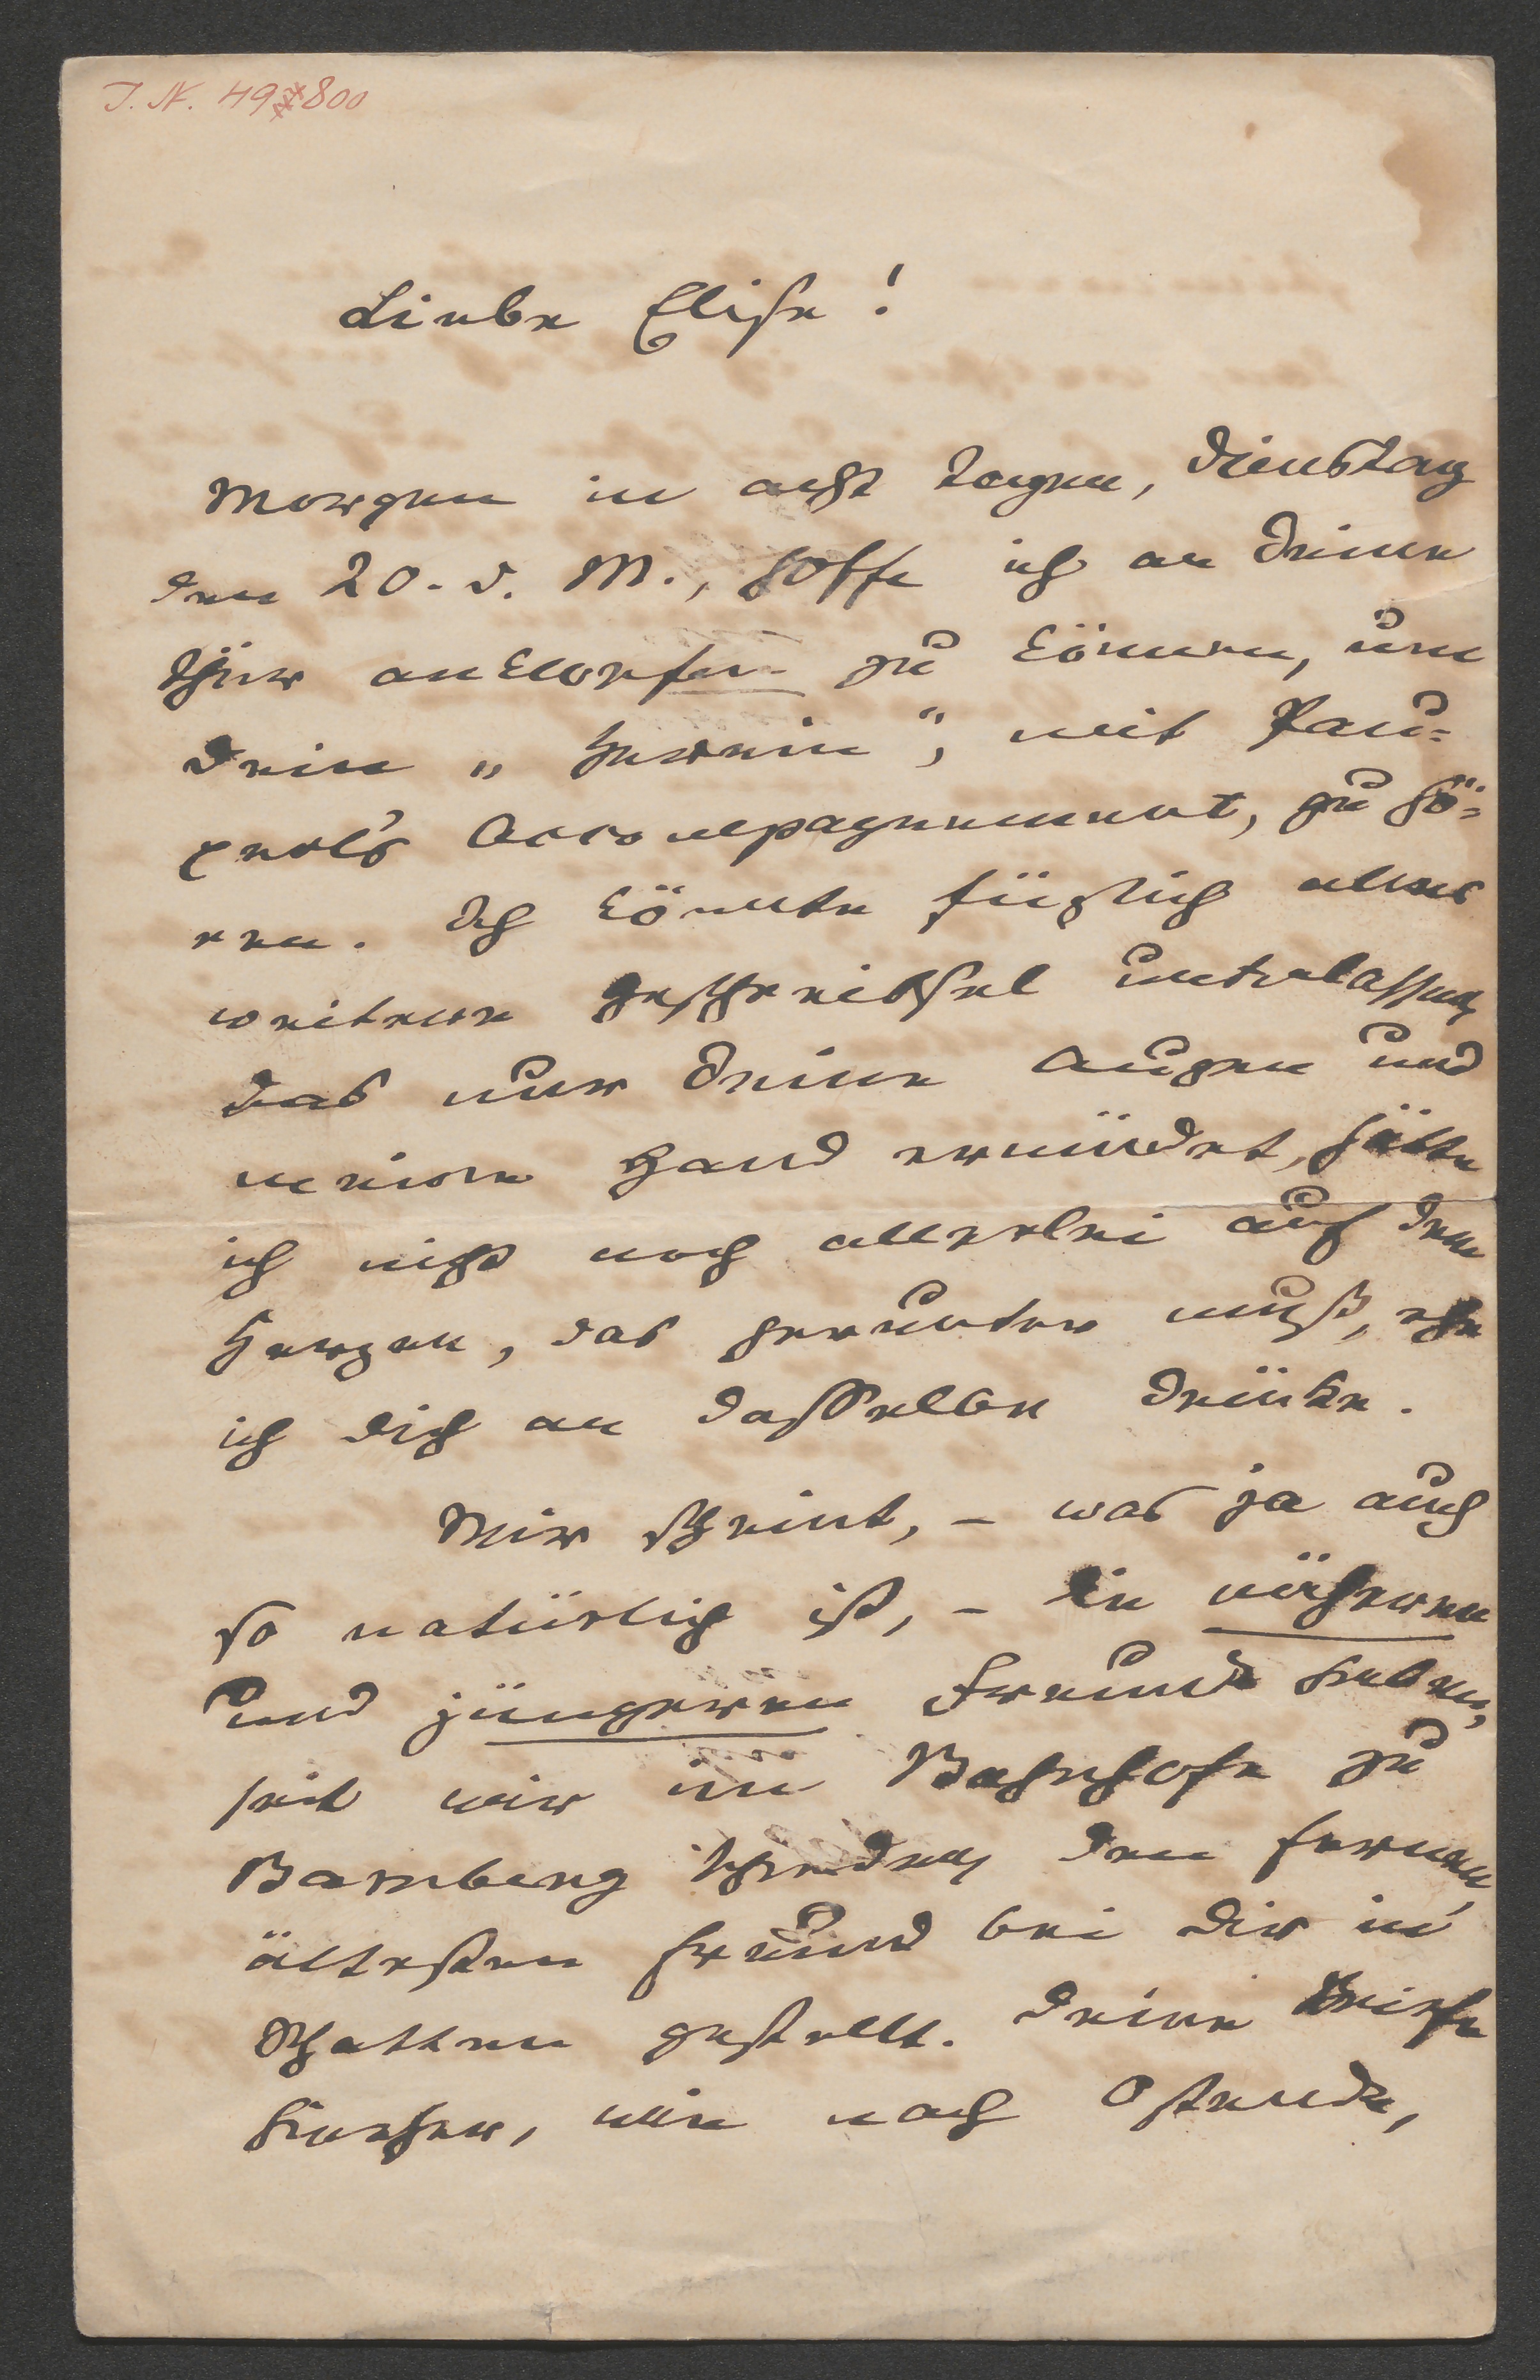 I. N. 49800
Liebe Elise!
Morgen in acht Tagen, Dienstag
den 20. d. M., hoffe ich an Deine
Thür anklopfen zu können, um
Dein „Herein“, mit Pau=
perl's Accompagnement, zu hö=
ren. Ich könnte füglich alles
weitere Geschreibsel unterlassen
das nur Deine Augen und
meine Hand ermüdet, hätte
ich nicht noch allerlei auf dem
Herzen, das herunter muß, ehe
ich Dich an dasselbe drücke.
Mir scheint, – was ja auch
so natürlich ist, – die näheren
und jüngeren Freunde haben,
seit wir im Bahnhofe zu
Bamberg schieden den fernen,
ältesten Freund bei Dir in
Schatten gestellt. Deine Briefe
hieher, wie nach Ostende,